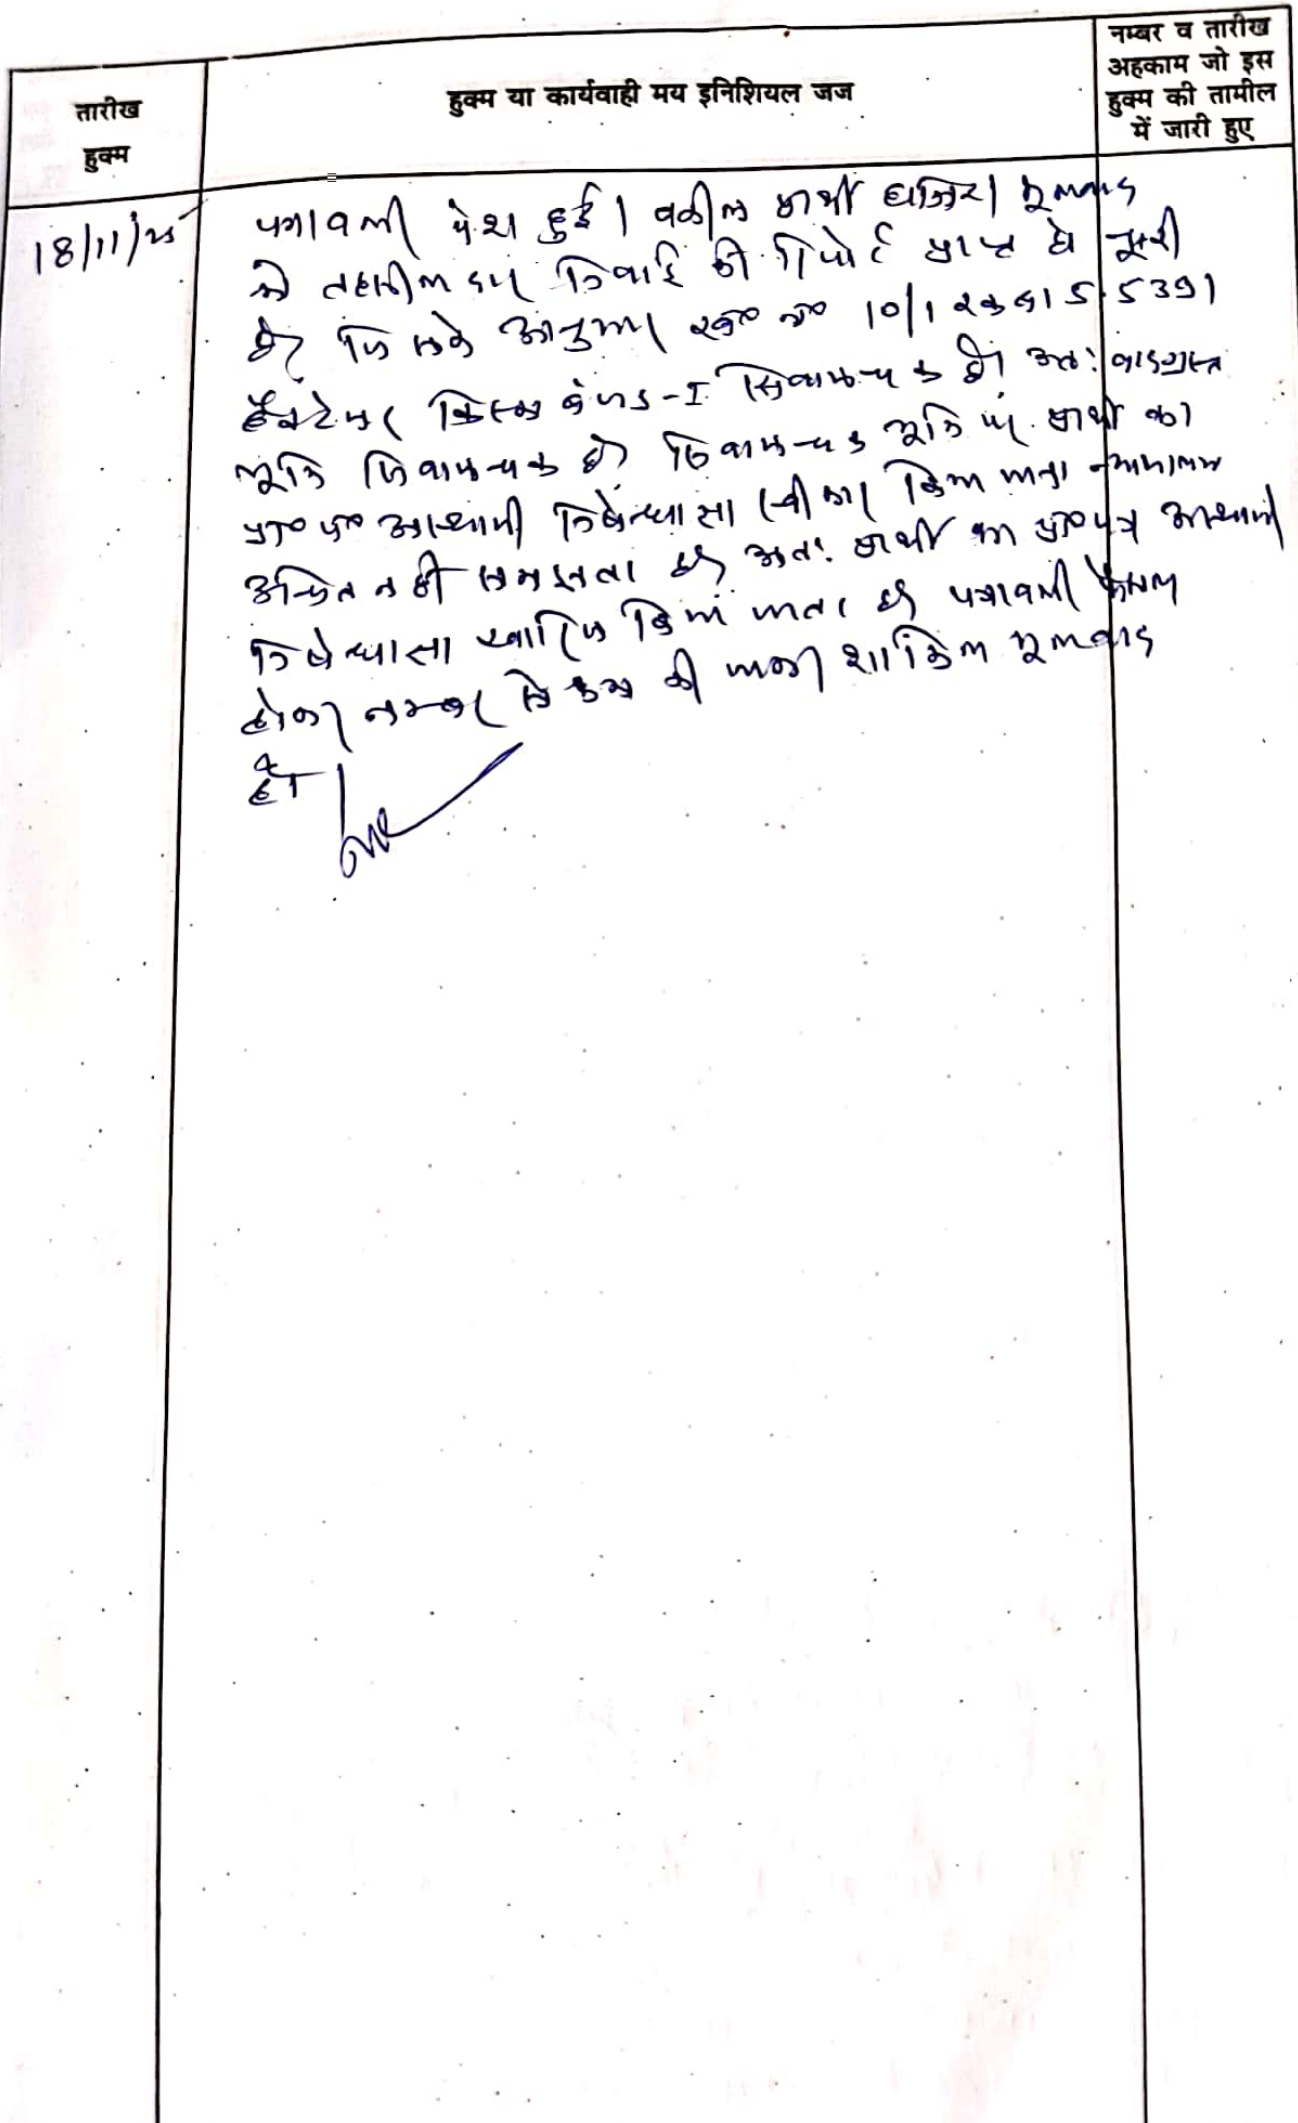 तारीख
हुक्म
हुक्म या कार्यवाही मय इनिशियल जज
नम्बर व तारीख
अहकाम जो इस
हुक्म की तामील
में जारी हुए
18/11/25
पत्रावली पेश हुई। वकील प्रार्थी हाजिर। मूलवाद
मे तहसीलदार निवाई की रिपोर्ट प्राप्त हो चुकी
है जिसके अनुसार ख० न० 10/1 रकबा 5.5391
हैक्टेयर किस्म बंजड-I सिवायचक है। अतः वादग्रस्त
भूमि सिवायचक है। सिवायचक भूमि पर प्रार्थी का
प्रा० प० अस्थायी निषेधाज्ञा स्वीकार किया जाना न्यायालय
उचित नही समझता है अतः प्रार्थी का प्रा० पत्र अस्थायी
निषेधाज्ञा खारिज किया जाता है पत्रावली फैसल
होकर नम्बर से कम की जाकर शामिल मूलवाद
हो।